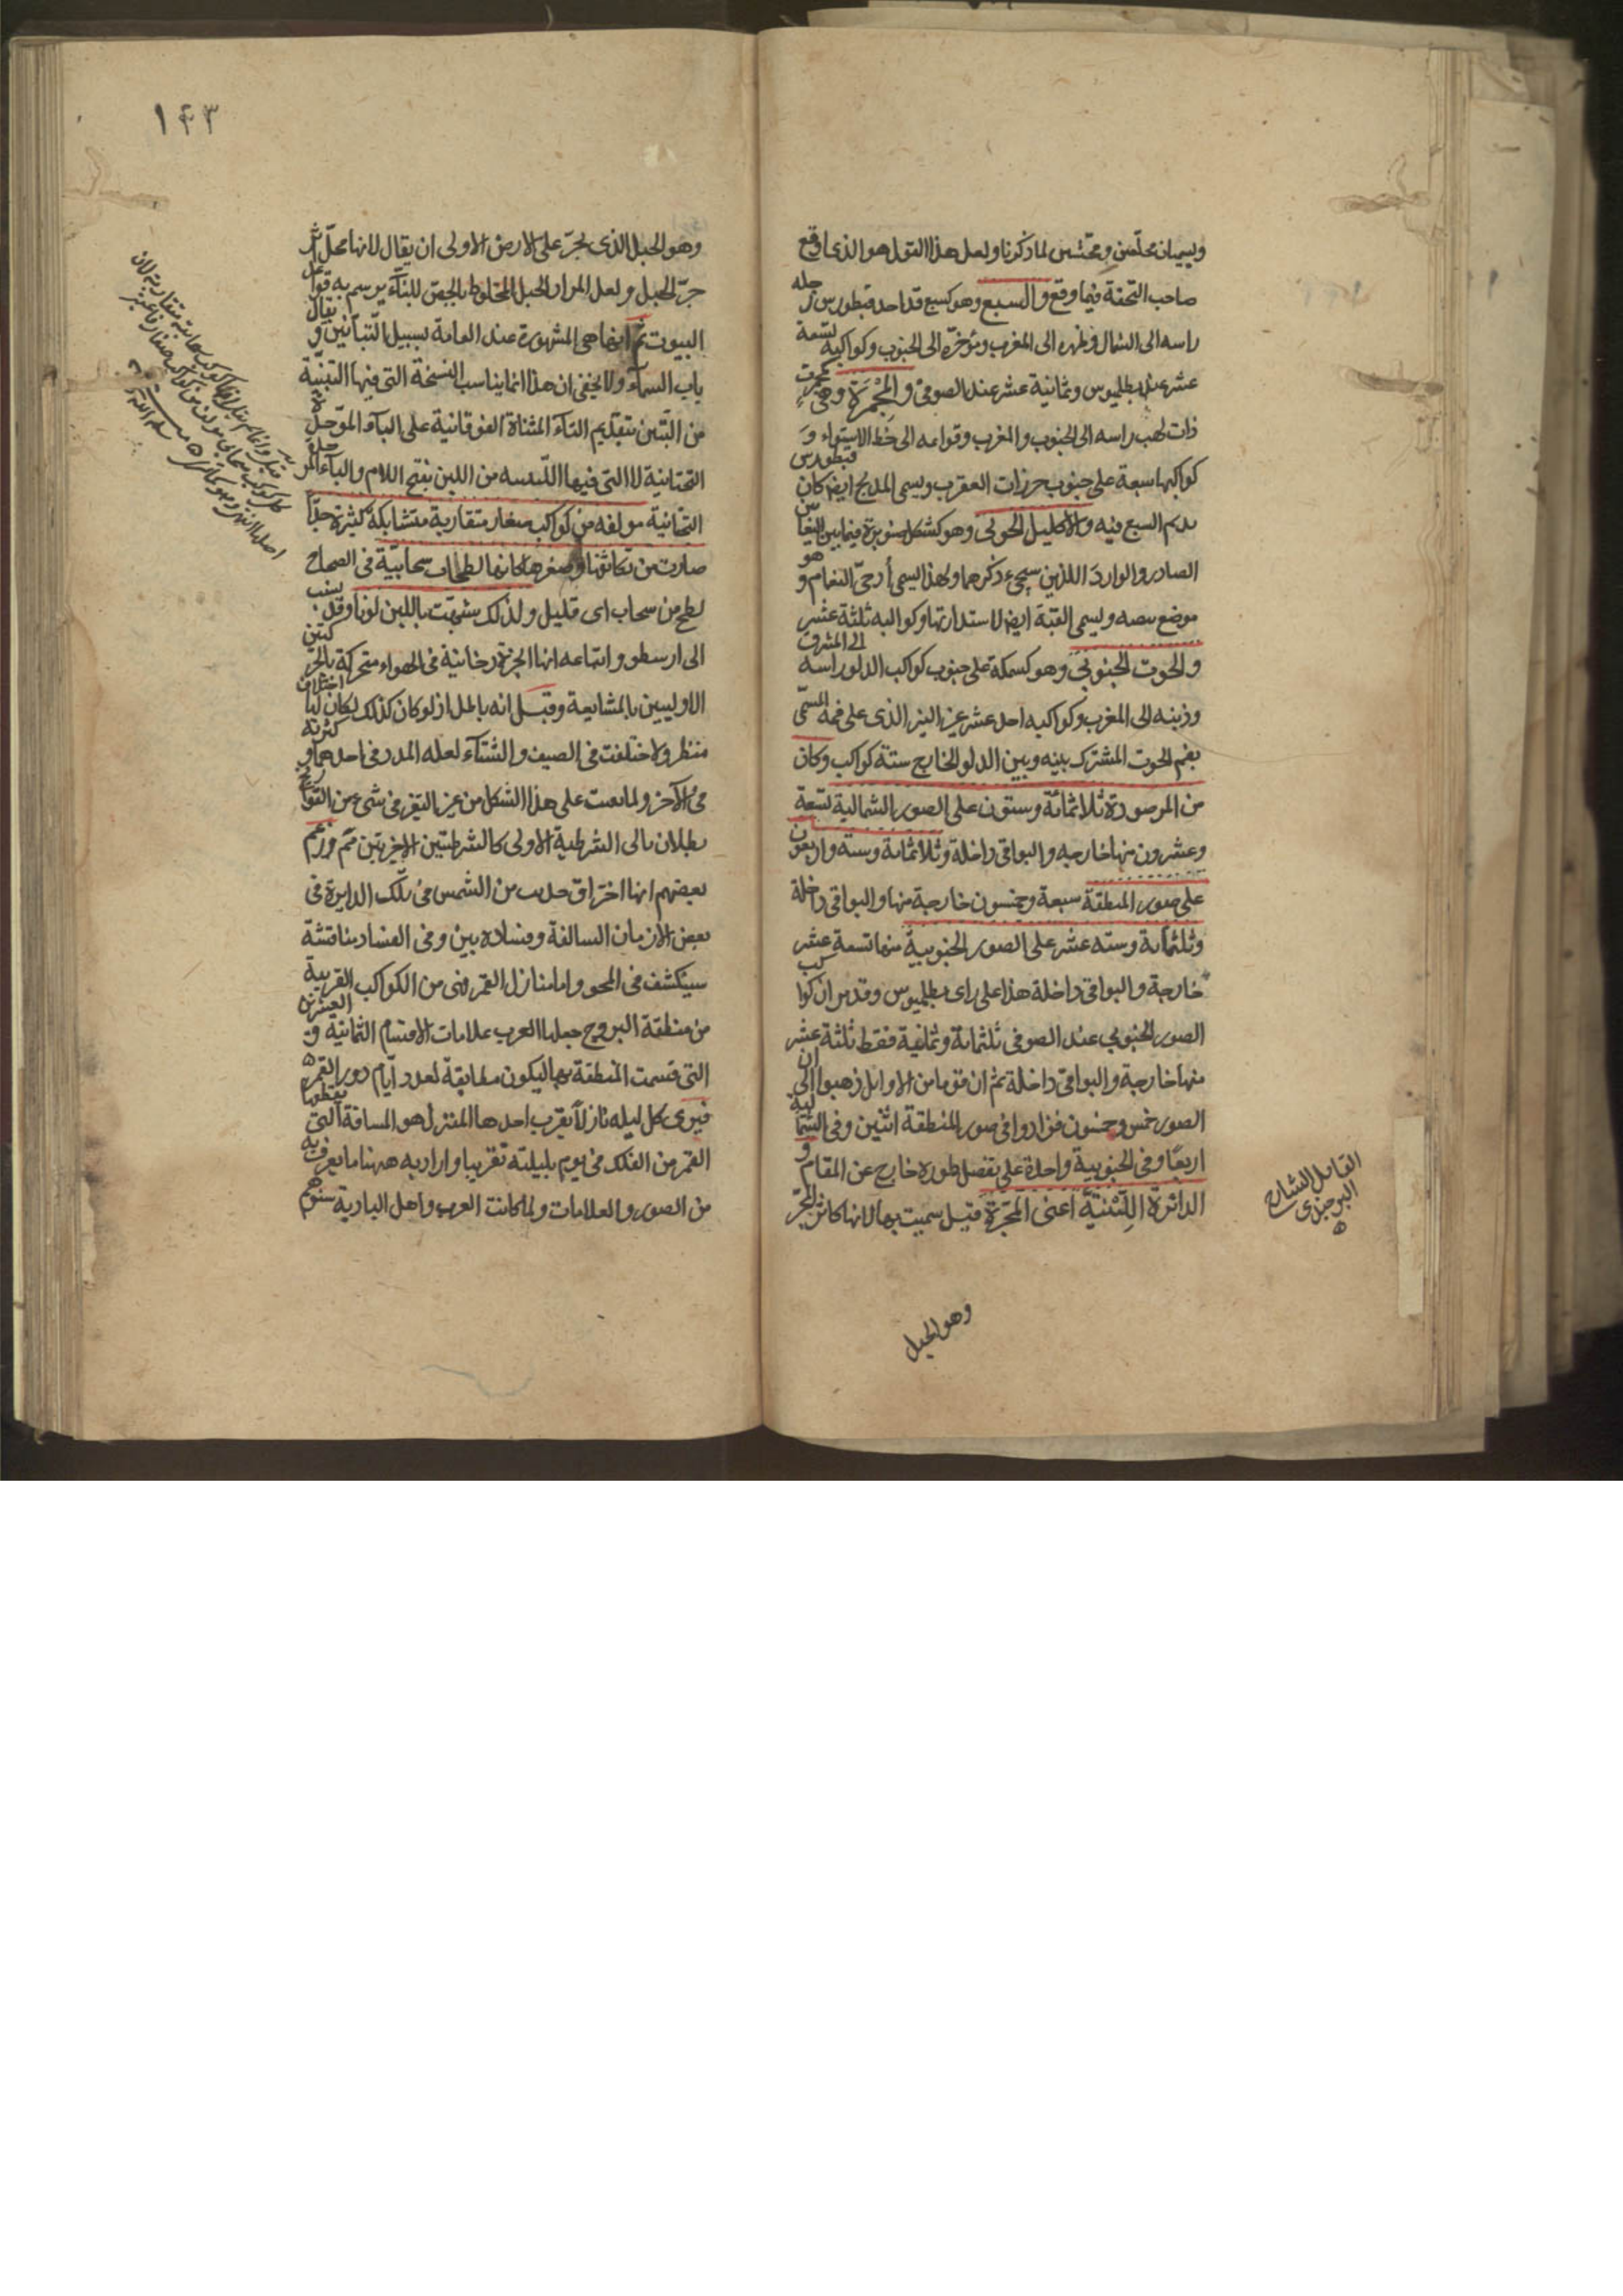 ويسميان محلفين ومحنثين لما ذكرنا ولعل هذا القول هو الذي اوقع
صاحب التحفة فيما وقع والسبع وهو كسبع قد اخذ قنطورس رجله
راسه الى الشمال وظهره الى المغرب ومؤخره الى الجنوب وكواكبه تسعة
عشر عند بطليموس وثمانية عشر عند الصوفي والمجمرة وهي كمجمرة
ذات لهب راسه الى الجنوب والمغرب وقوائمه الى خط الاستواء و
كواكبها سبعة على جنوب خرزات العقرب ويسمى المذبح ايضا كان قنطورس
يذبح السبع فيه والاكليل الجنوبي وهو كشكل صنوبرة فيما بين النعامين
الصادر والوارد اللذين سيجيء ذكرهما ولهذا يسمى أدحيّ النعام و هو
موضع بيضه ويسمى القبة ايضا لاستدارتها وكواكبه ثلثة عشر
والحوت الجنوبي وهو كسمكة على جنوب كواكب الدلو راسه الى المشرق
وذنبه الى المغرب وكواكبه احد عشر غير النير الذي على فمه المسمى
بفم الحوت المشترك بينه وبين الدلو الخارج ستة كواكب وكان
من المرصودة ثلاثمائة وستون على الصور الشمالية تسعة
وعشرون منها خارجه والبواقي داخلة وثلاثمائة وستة واربعون
على صور المنطقة سبعة وخمسون خارجة منها والبواقي داخلة
وثلثمائة وسته عشر على الصور الجنوبية منها تسعة عشر
خارجة والبواقي داخلة هذا على راى بطليموس وقد مر ان كواكب
الصور الجنوبي عند الصوفي ثلثمائة وثمانية فقط ثلثة عشر
منها خارجة والبواقي داخلة ثم ان قوما من الاوايل ذهبوا الى ان
الصور خمس وخمسون فزادوا في صور المنطقة اثنين وفي الشمالية
اربعا وفي الجنوبية واحدة على تفصيل طوره خارج عن المقام و
الدائرة اللبنية اعنى المجرّة قيل سميت بها لانها كاثر المجرّ
القايل الشارح
البرجندي
وهو الحبل
١٤٣
وهو الحبل الذي يجرّ على الارض الاولى ان يقال لانها محل اثر
جرّ الحبل ولعل المراد الحبل المخلوط بالجص للبنّاء يرسم به قواعد
البيوت ثم انها هي المشهورة عند العامة بسبيل التبّانين و يقال
باب السماء ولا يخفى ان هذا انما يناسب النسخة التي فيها التبنيّة
من التبن بتقديم التاء المثناة الفوقانية على الباء الموحدة
التحتانية لا التي فيها اللبنيه من اللبن بفتح اللام والباء
التحتانية مولفه من كواكب صغار متقاربة متشابكة كثيرة جدّا
صارت من تكاثفها وصغرها كانها لطخات سحابيّة في الصحاح
لطخ من سحاب اى قليل ولذلك شبهت باللبن لونا وقد نسب
الى ارسطو واتباعه انها ادخنة دخانية في الهواء متحركة بالحركتين
الاوليين بالمشايعة وقيل انه باطل اذ لو كان كذلك لكان لها اختلاف
منظر ولاختلفت في الصيف والشتاء لعله المدد في احدهما و كثرته
في الآخر ولما بقيت على هذا الشكل من غير التغير في شيء من
بطلان تالى الشرطية الاولى كالشرطيتين الاخريين ثم وزعم
بعضهم انها احتراق حدث من الشمس في تلك الدايرة في
بعض الازمان السالفة وفساده بين وفي الفساد مناقشة
سينكشف في المحو واما منازل القمر فهي من الكواكب القريبة
من منطقة البروج جعلها العرب علامات الاقسام الثمانية و العشرين
التي قسمت المنطقة بها ليكون مطابقة لعدد ايّام دور القمر
فيرى كل ليله نازلا بقرب احدها المنزل هو المسافة التي يقطعها
القمر من الفلك في يوم بليلته تقريبا واراد به ههنا ما يعرف به
من الصور والعلامات ولما كانت العرب واهل البادية سنوهم